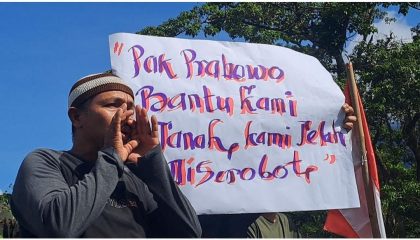 "Pak Prabowo
Bantu Kami
Tanah Kami Telah
Diserobot"